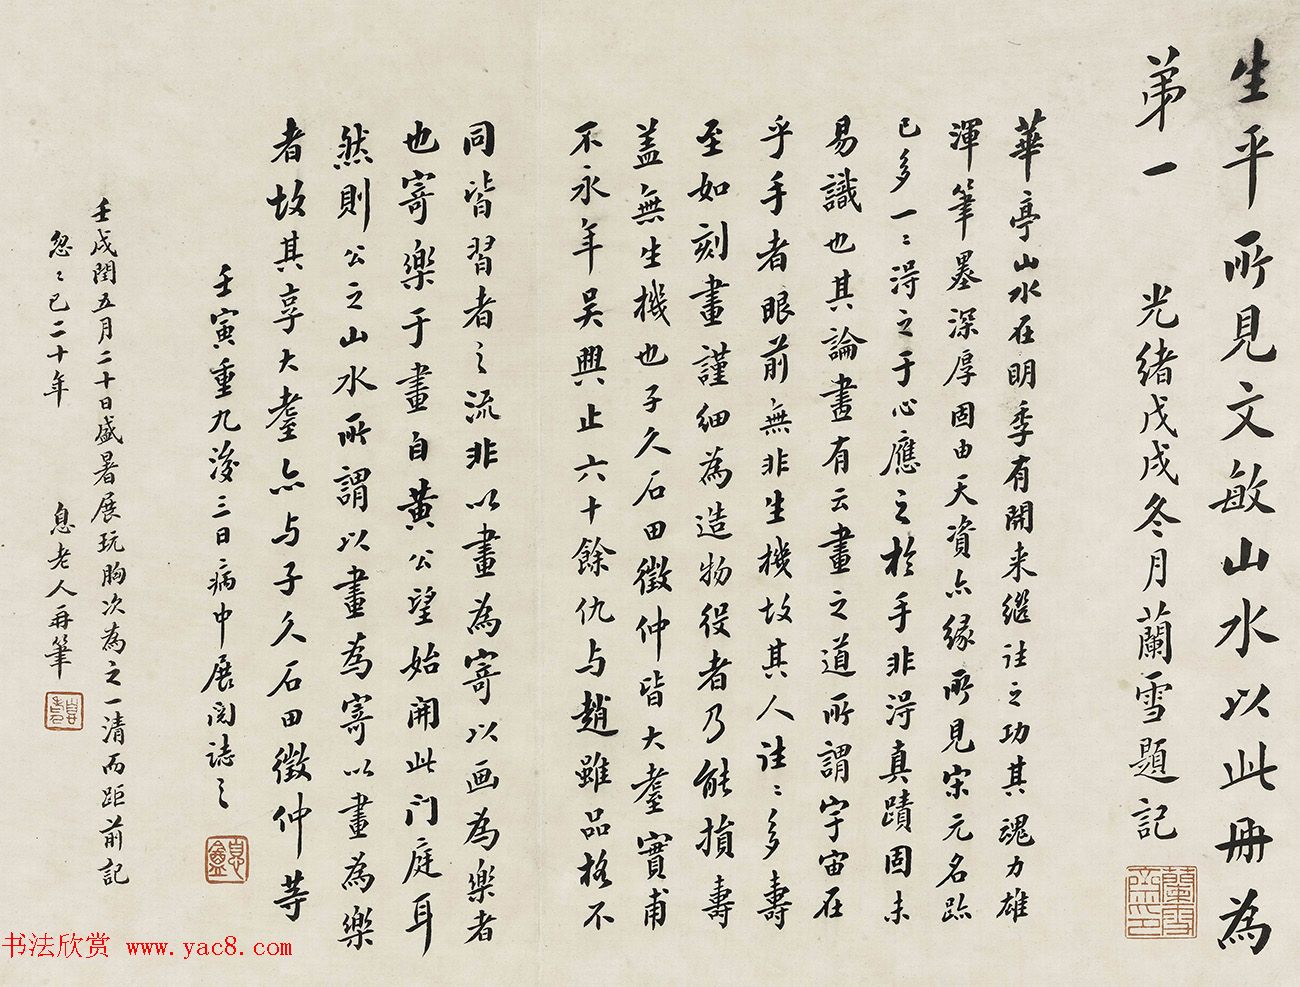 生平所見文敏山水以此冊為
弟一　光緒戊戌冬月蘭雪題記
蘭雪齋印
華亭山水在明季有開来繼往之功其魂力雄
渾筆墨深厚固由天資亦緣所見宋元名跡
已多一二得之于心應之於手非得真蹟固未
易識也其論畫有云畫之道所謂宇宙在
乎手者眼前無非生機故其人往往多壽
至如刻畫謹細為造物役者乃能損壽
盖無生機也子久石田徵仲皆大耋實甫
不永年吴興止六十餘仇与趙雖品格不
同皆習者之流非以畫為寄以画為樂者
也寄樂于畫自黄公望始開此门庭耳
然則公之山水所謂以畫為寄以畫為樂
者故其享大耋亦与子久石田徵仲等
壬寅重九後三日病中展閱誌之
壬戌閏五月二十日盛暑展玩胸次為之一清而距前記
忽忽已二十年　息老人再筆
书法欣赏 www.yac8.com